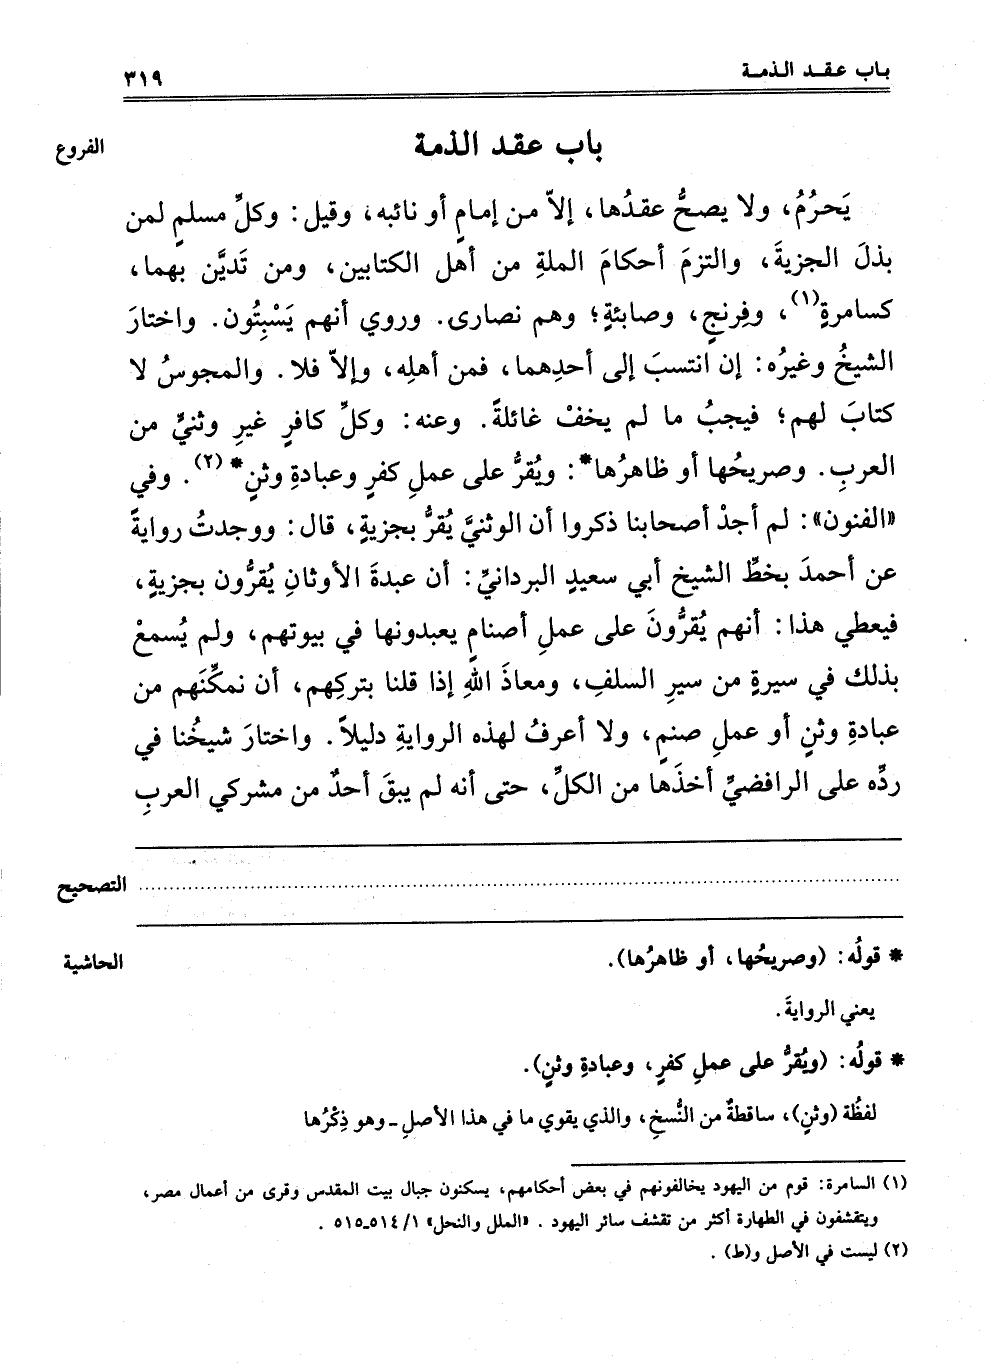 باب عقد الذمة
٣١٩
باب عقد الذمة
الفروع
يَحرُمُ، ولا يصحُّ عقدُها، إلاّ من إمامٍ أو نائبه، وقيل: وكلِّ مسلمٍ لمن
بذلَ الجزيةَ، والتزمَ أحكامَ الملةِ من أهل الكتابين، ومن تَديَّن بهما،
كسامرةٍ(١)، وفِرنجٍ، وصابئةٍ؛ وهم نصارى. وروي أنهم يَسْبِتُون. واختارَ
الشيخُ وغيرُه: إن انتسبَ إلى أحدِهما، فمن أهلِه، وإلاّ فلا. والمجوسُ لا
كتابَ لهم؛ فيجبُ ما لم يخفْ غائلةً. وعنه: وكلِّ كافرٍ غيرِ وثنيٍّ من
العربِ. وصريحُها أو ظاهرُها*: ويُقرُّ على عملِ كفرٍ وعبادةِ وثنٍ*(٢). وفي
«الفنون»: لم أجدْ أصحابنا ذكروا أن الوثنيَّ يُقرُّ بجزيةٍ، قال: ووجدتُ روايةً
عن أحمدَ بخطِّ الشيخ أبي سعيدٍ البردانيِّ: أن عبدةَ الأوثانِ يُقرُّون بجزيةٍ،
فيعطي هذا: أنهم يُقرُّونَ على عملِ أصنامٍ يعبدونها في بيوتهم، ولم يُسمعْ
بذلك في سيرةٍ من سيرِ السلفِ، ومعاذَ اللهِ إذا قلنا بتركِهم، أن نمكِّنَهم من
عبادةِ وثنٍ أو عملِ صنمٍ، ولا أعرفُ لهذه الروايةِ دليلاً. واختارَ شيخُنا في
ردِّه على الرافضيِّ أخذَها من الكلِّ، حتى أنه لم يبقَ أحدٌ من مشركي العربِ
التصحيح
الحاشية
* قولُه: (وصريحُها، أو ظاهرُها).
يعني الروايةَ.
* قولُه: (ويُقرُّ على عملِ كفرٍ، وعبادةِ وثنٍ).
لفظُة (وثنٍ)، ساقطةٌ من النُّسخِ، والذي يقوي ما في هذا الأصلِ ـ وهو ذِكْرُها
(١) السامرة: قوم من اليهود يخالفونهم في بعض أحكامهم، يسكنون جبال بيت المقدس وقرى من أعمال مصر،
ويتقشفون في الطهارة أكثر من تقشف سائر اليهود. «الملل والنحل» ١/ ٥١٤ـ٥١٥ .
(٢) ليست في الأصل و(ط) .